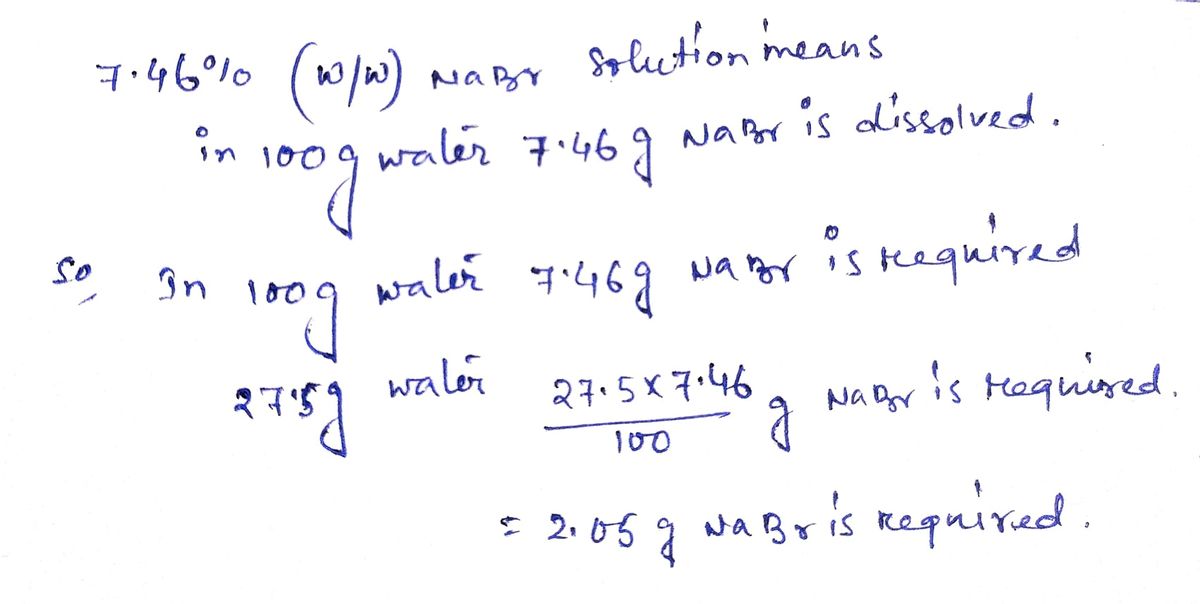 7.46% (w/w) NaBr solution means
in 100g water 7.46g NaBr is dissolved.
so, In 100g water 7.46g NaBr is required
27.5g water 27.5x7.46/100 g NaBr is required.
= 2.05 g NaBr is required.